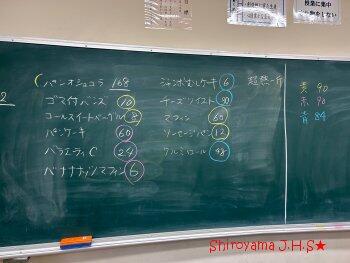 パンオショコラ 168
ゴマ付バンズ 70
コールスイートベーグル 8
パンケーキ 60
バラエティC 24
バナナナッツマフィン 6
ジャンボむしケーキ 6
チーズツイスト 90
マフィン 60
ソーセージパン 12
クルミロール 48
超熟一斤
黄 90
赤 90
青 84
2
Shiroyama J.H.S★